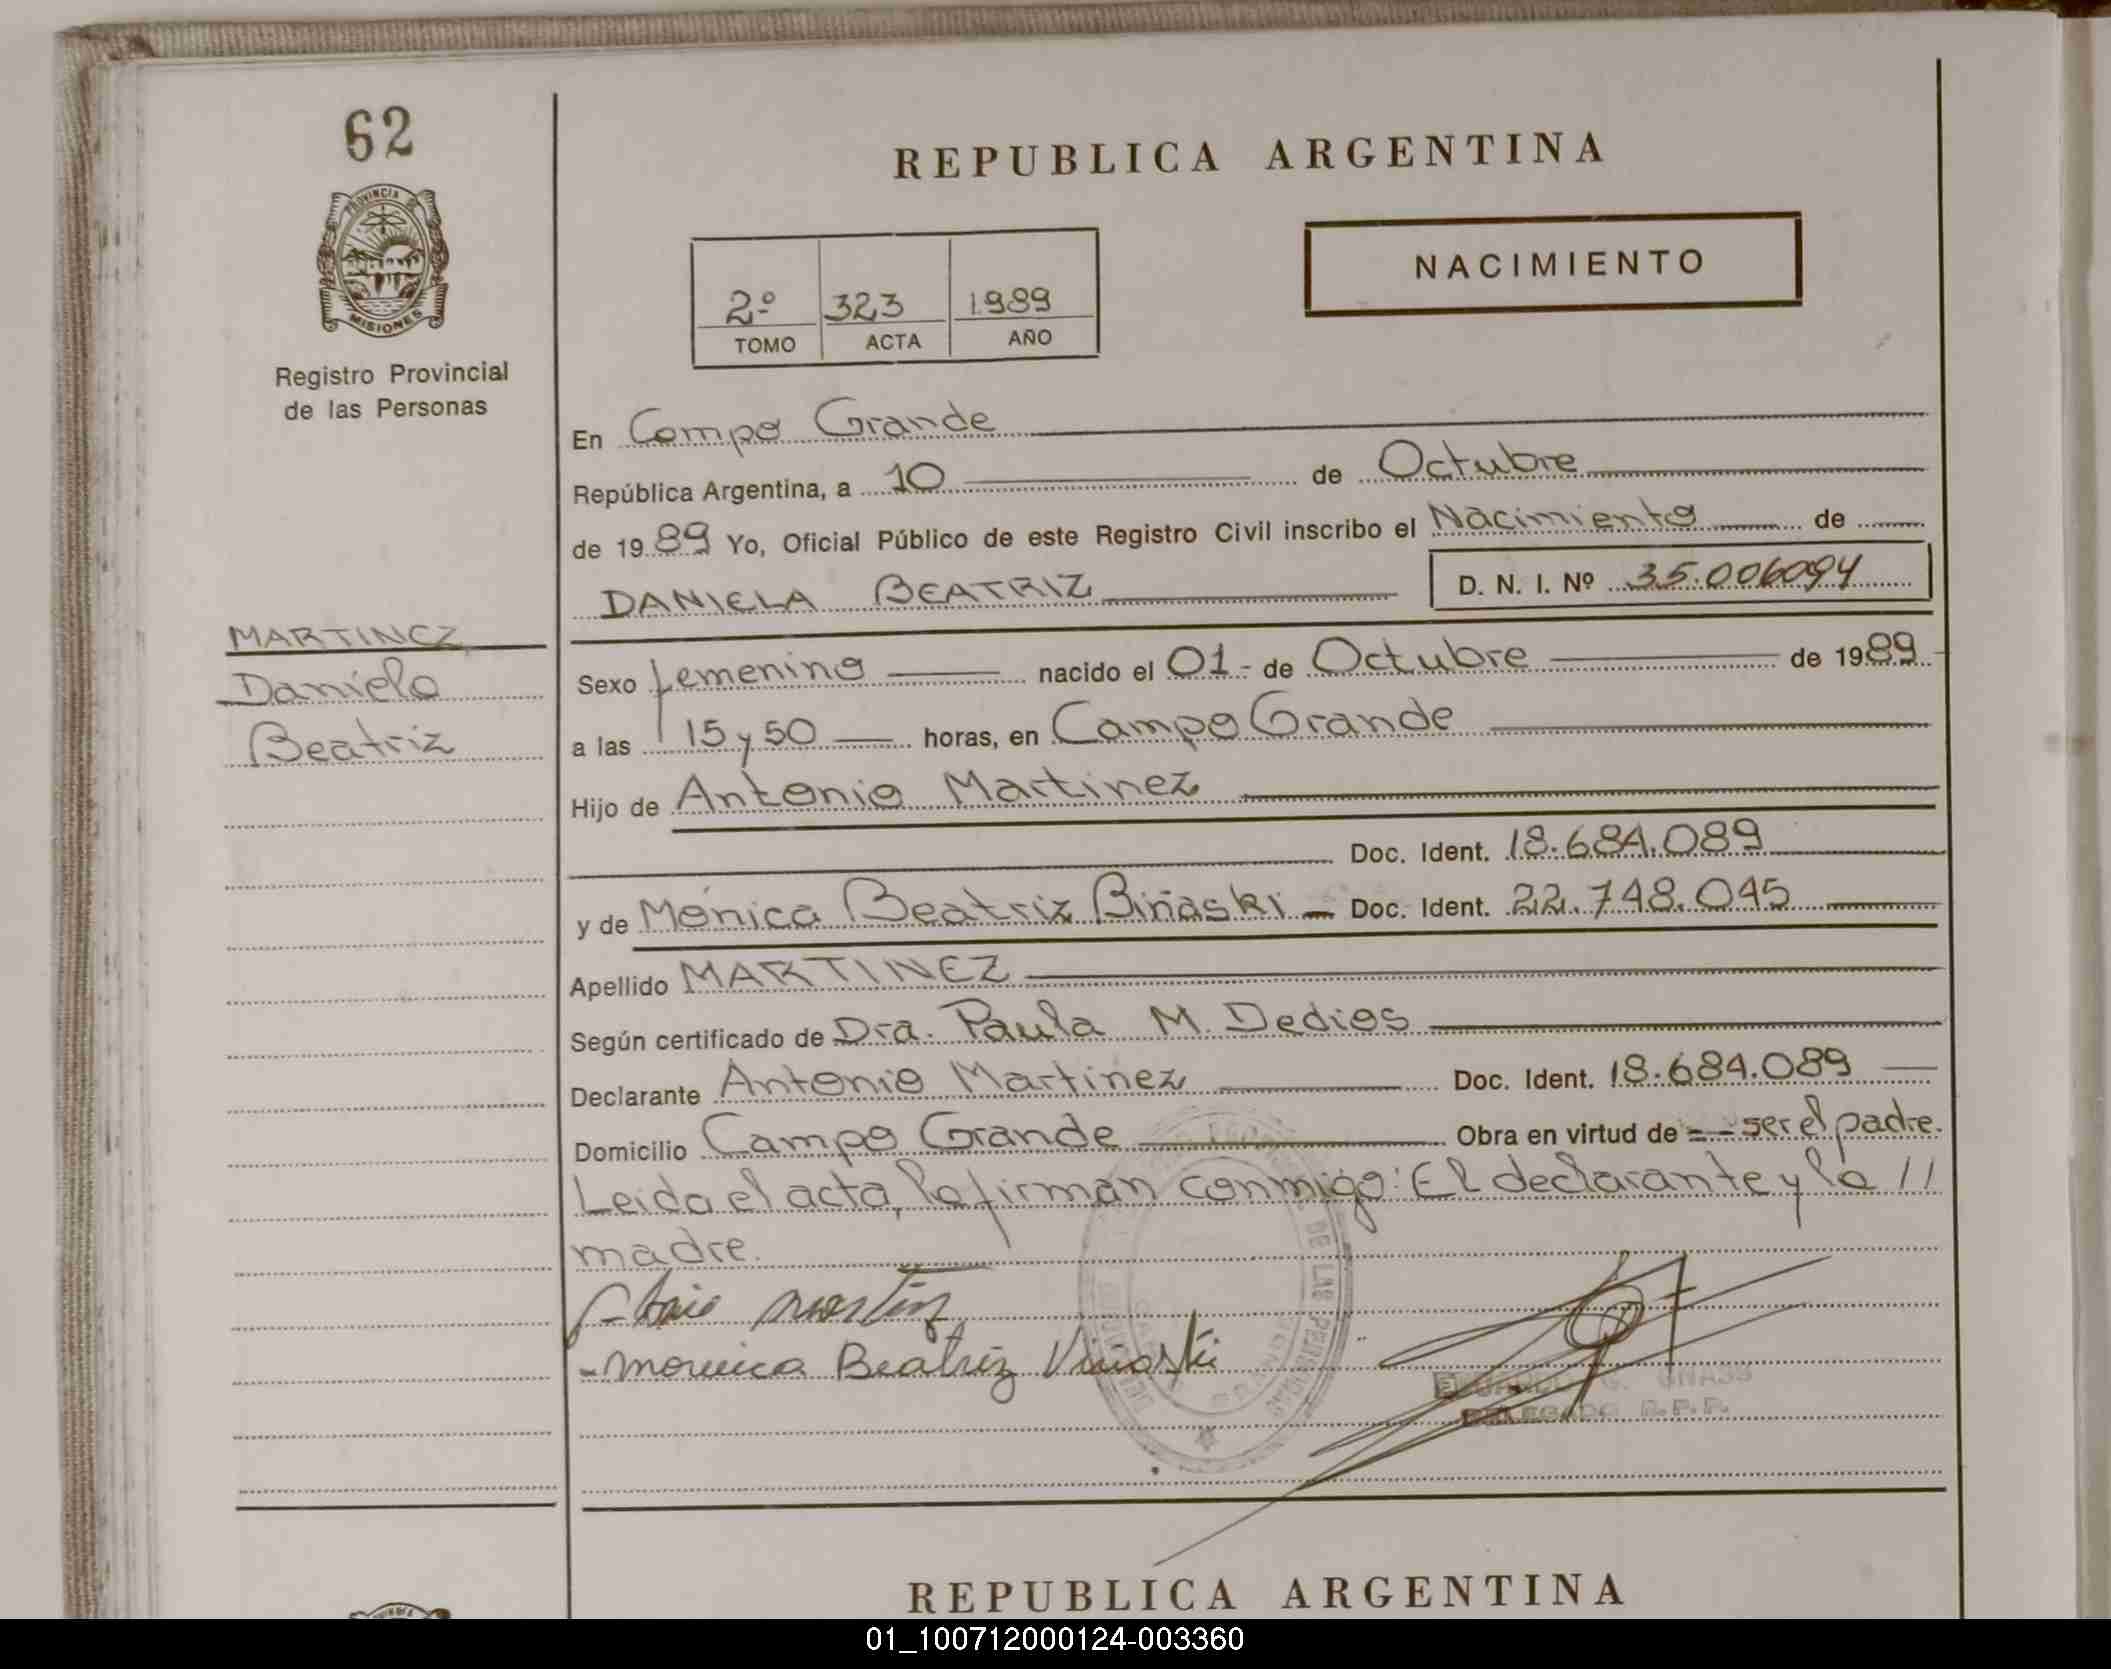 62
PROVINCIA DE
MISIONES
Registro Provincial
de las Personas
REPUBLICA ARGENTINA
NACIMIENTO
2º 323 1989
TOMO ACTA AÑO
En Campo Grande
República Argentina, a 10 de Octubre
de 1989 Yo, Oficial Público de este Registro Civil inscribo el Nacimiento de
DANIELA BEATRIZ D. N. I. Nº 35.006094
MARTINEZ
Daniela
Beatriz
Sexo femenino nacido el 01 - de Octubre de 1989
a las 15 y 50 horas, en Campo Grande
Hijo de Antonio Martinez
Doc. Ident. 18.684.089
y de Mónica Beatriz Biñaski - Doc. Ident. 22.748.045
Apellido MARTINEZ
Según certificado de Dra. Paula M. Dedios
Declarante Antonio Martinez Doc. Ident. 18.684.089
Domicilio Campo Grande Obra en virtud de = - ser el padre.
Leida el acta, la firman conmigo: El declarante y la //
madre.
- Monica Beatriz Viñaski
DE LAS PERSONAS
CAMPO GRANDE
G. GNASS
DELEGADO R.P.P.
REPUBLICA ARGENTINA
01_100712000124-003360